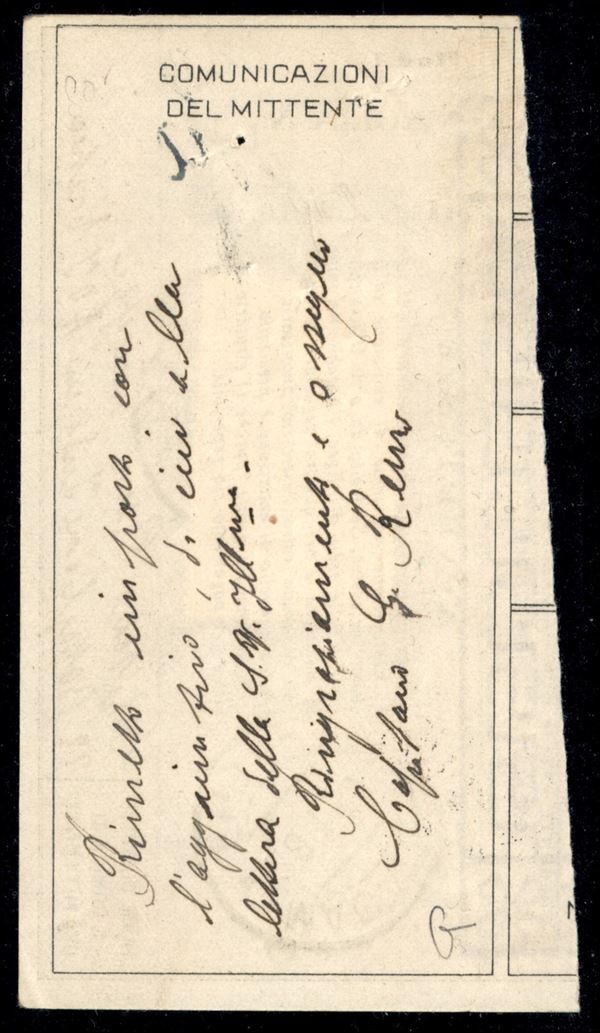 COMUNICAZIONI
DEL MITTENTE
Rimetto importo con
l'aggiuntivo, di cui alla
lettera della S.V. Ill.ma.
Ringraziamenti e ossequi
Capitano G. Renzo